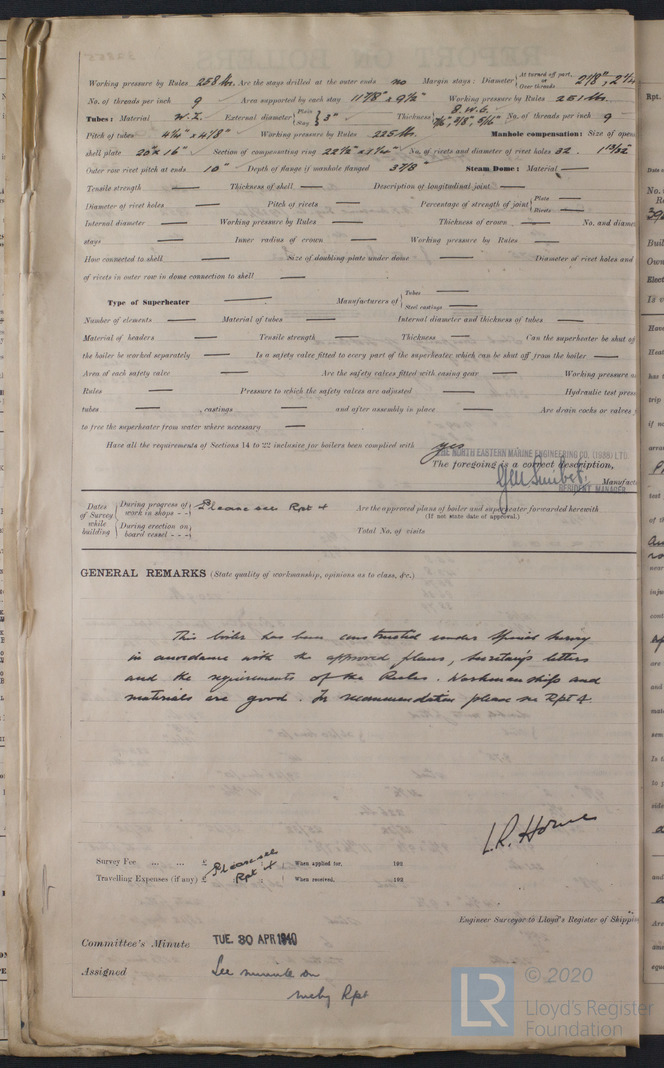 Working pressure by Rules 258 lbs. Are the stays drilled at the outer ends no Margin stays: Diameter { At turned off part, or Over threads 2 1/8", 2 1/4
No. of threads per inch 9 Area supported by each stay 11 7/8" x 9 1/2" Working pressure by Rules 251 lbs.
Tubes: Material W.I. External diameter { Plain Stay } 3" Thickness { 8 W.G. 7/16", 3/8", 5/16" No. of threads per inch 9
Pitch of tubes 4 1/4" x 4 1/8" Working pressure by Rules 225 lbs. Manhole compensation: Size of open
shell plate 20" x 16" Section of compensating ring No. of rivets and diameter of rivet holes 32. 1 13/32"
Outer row rivet pitch at ends 10" Depth of flange if manhole flanged 3 7/8" Steam Dome: Material —
Tensile strength — Thickness of shell — Description of longitudinal joint —
Diameter of rivet holes — Pitch of rivets — Percentage of strength of joint { Plate — Rivets —
Internal diameter — Working pressure by Rules — Thickness of crown — No. and diame
stays — Inner radius of crown — Working pressure by Rules —
How connected to shell — Size of doubling plate under dome — Diameter of rivet holes and
of rivets in outer row in dome connection to shell —
Type of Superheater — Manufacturers of { Tubes — Steel castings —
Number of elements — Material of tubes — Internal diameter and thickness of tubes —
Material of headers — Tensile strength — Thickness — Can the superheater be shut of
the boiler be worked separately — Is a safety valve fitted to every part of the superheater which can be shut off from the boiler —
Area of each safety valve — Are the safety valves fitted with easing gear — Working pressure a
Rules — Pressure to which the safety valves are adjusted — Hydraulic test press
tubes — , castings — and after assembly in place — Are drain cocks or valves
to free the superheater from water where necessary —
Have all the requirements of Sections 14 to 22 inclusive for boilers been complied with yes
THE NORTH EASTERN MARINE ENGINEERING CO. (1938) LTD
The foregoing is a correct description,
Manufact
RESIDENT MANAGER
Dates of Survey while building { During progress of work in shops - - } Please see Rpt 4 Are the approved plans of boiler and superheater forwarded herewith
(If not state date of approval.)
{ During erection on board vessel - - - } Total No. of visits
GENERAL REMARKS (State quality of workmanship, opinions as to class, &c.)
This boiler has been constructed under Special Survey
in accordance with the approved plans, Secretary's letters
and the requirements of the Rules. Workmanship and
materials are good. For recommendation please see Rpt 4.
L.R. Horne
Survey Fee ... ... £ Please see Rpt 4 When applied for, 192
Travelling Expenses (if any) £ When received, 192
Engineer Surveyor to Lloyd's Register of Shippin
Committee's Minute TUE. 30 APR 1940
Assigned See minute on
Rpt
LR © 2020
Lloyd's Register
Foundation